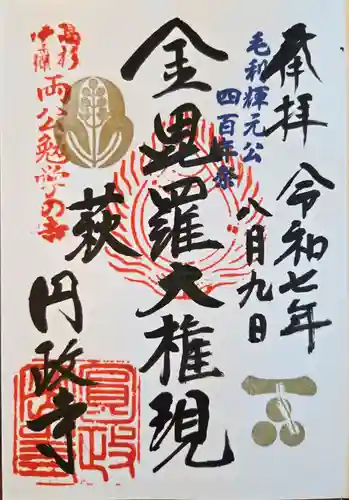 奉拝
令和七年
八月九日
毛利輝元公
四百年祭
金毘羅大権現
萩
円政寺
高杉
伊藤
両公勉学の寺
圓政